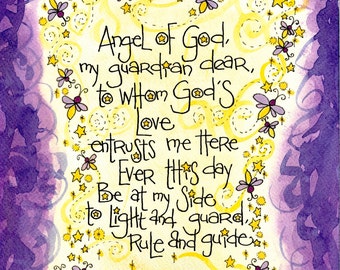 Angel of God,
my guardian dear,
to whom God's
Love
entrusts me here
Ever this day
Be at my side
to Light and guard,
Rule and guide